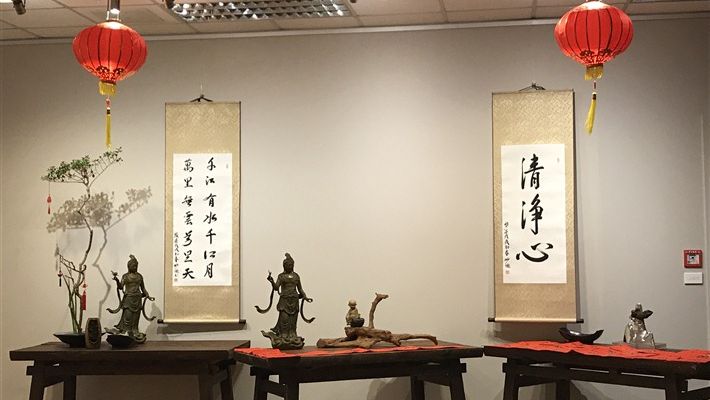 千江有水千江月
萬里無雲萬里天
清淨心